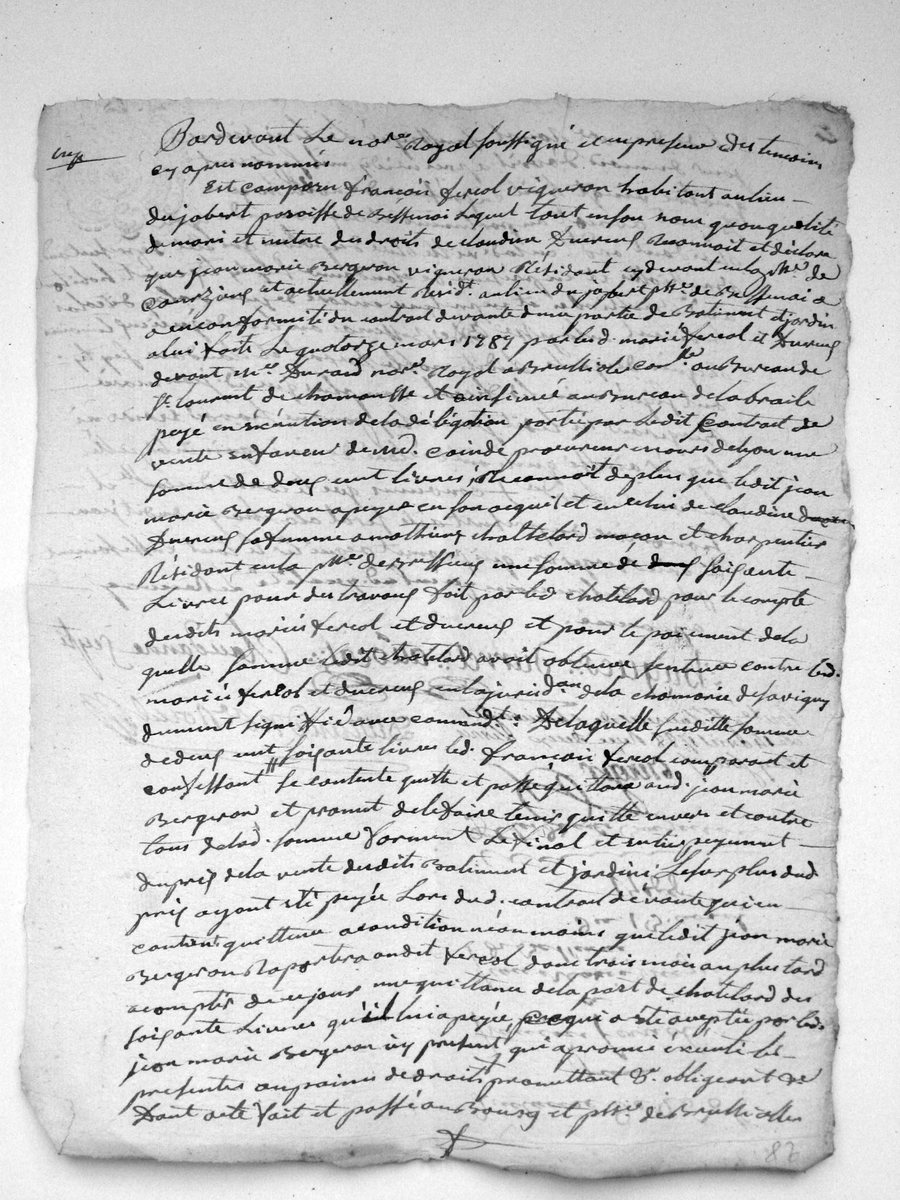 Pardevant Le nore Royal soussigné et en presence des temoins
cy apres nommés
Est comparu françois fercol vigneron habitant au lieu
du jobert paroisse de Bessenai Lequel tant en son nom qu'en qualité
de mari et maitre des droits de claudine Ducreux Reconnoit et déclare
que jean marie Bergeron vigneron Résidant cydevant en la psse de
Courzieux et actuellement Residt au lieu du jobert psse de Bessenai a
a en conformité du contrat de vante d'une partie de Batiment et jardin
a lui faite Le quatorze mars 1789 par led. mariés fercol et Ducreux
devant Me Durand nore Royal a Brussieu con.lé au Bureau de
St laurent de chamousset et insinué au Bureau de la braile
payé en exécution de la délégation portée par ledit Contrat de
vente en faveur de Md. cainde procureur ez cours de lyon une
somme de deux cent livres; Reconnoit de plus que ledit jean
marie Bergeron a payé en son acquit et en celui de claudine
Ducreux sa femme a mathieu chattelard maçon et charpentier
Résidant en la psse de Bressieux une somme de soixante
Livres pour des travaux fait par led chatelard pour le compte
desdits mariés fercol et ducreux et pour le paiement de la
quelle somme ledit chatelard avoit obtenue sentence contre led.
mariés fercol et ducreux en la juridon de la chamarie de savigny
dument signiffiée avec commandt. De laquelle susditte somme
de deux cent soixante livres led. françois fercol comparant et
confessant se contente quitte et passe quittance aud. jean marie
Bergeron et promet de le faire tenir quitte envers et contre
tous de lad. somme formant Le final et entier payement
du prix de la vente desdits Batiment et jardin; Le surplus dud
prix ayant été payée Lors dud. contrat de vante qui en
contient quittance a condition néanmoins que ledit jean marie
Bergeron Raportera audit fercol dans trois mois au plus tard
a compter de ce jour une quittance de la part de chatelard des
soixante Livres qu'il lui a payée, ce qui a été accepté par led.
jean marie Bergeron icy present qui a promis exécuté les
presentes aux peines de droits promettant &c. obligeant &c
Dont acte fait et passé au Bourg et psse de Brullioles
82